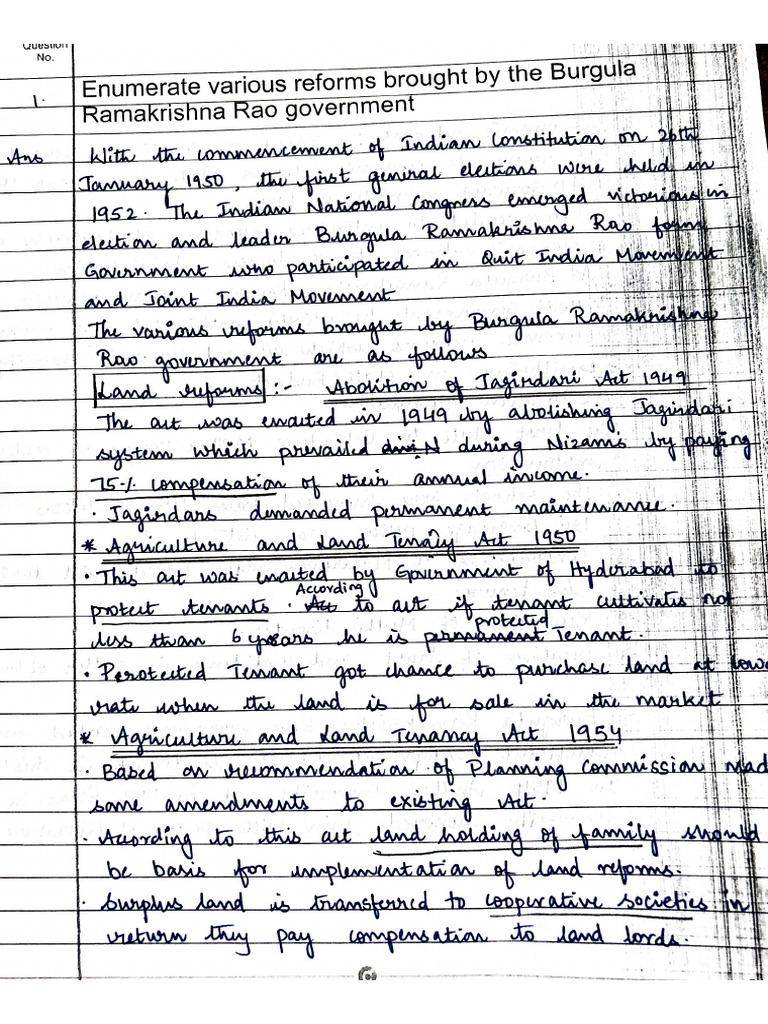 Question
No.
1.
Enumerate various reforms brought by the Burgula
Ramakrishna Rao government
Ans
With the commencement of Indian Constitution on 26th
January 1950, the first general elections were held in
1952. The Indian National Congress emerged victorious in
election and leader Burgula Ramakrishna Rao form
Government who participated in Quit India Movement
and Joint India Movement
The various reforms brought by Burgula Ramakrishna
Rao government are as follows
Land reforms :- Abolition of Jagirdari Act 1949
The act was enacted in 1949 by abolishing Jagirdari
system which prevailed during Nizam's by paying
75% compensation of their annual income.
· Jagirdars demanded permanent maintenance.
* Agriculture and Land Tenancy Act 1950
· This act was enacted by Government of Hyderabad to
protect tenants. According to act if tenant cultivates not
less than 6 years he is protected Tenant.
· Perotected Tenant got chance to purchase land at low
rate when the land is for sale in the market
* Agriculture and Land Tenancy Act 1954
· Based on recommendation of Planning Commission mad
some amendments to existing Act.
· According to this act land holding of family should
be basis for implementation of land reforms.
· Surplus land is transferred to cooperative societies in
return they pay compensation to land lords.